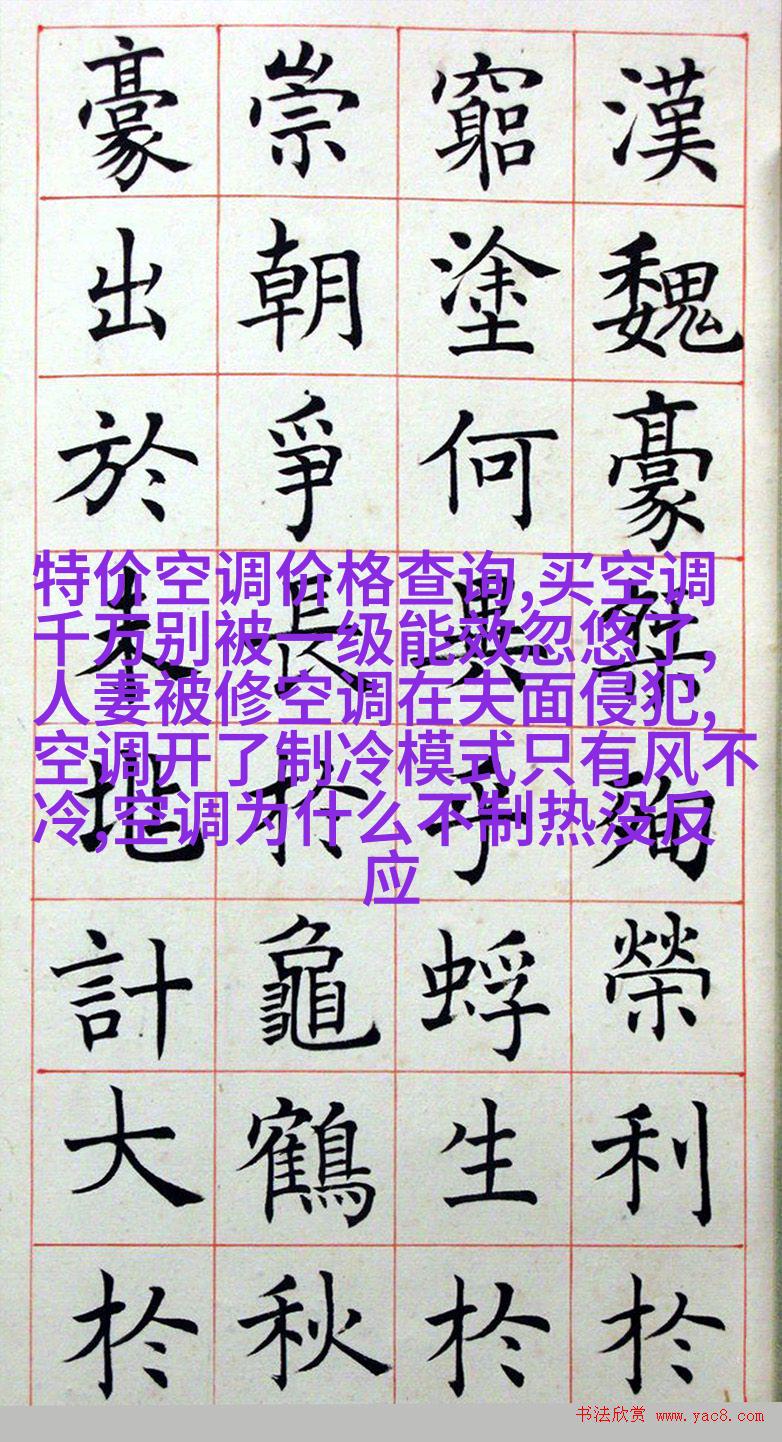 漢魏豪殉榮利於
窮塗何異乎蜉生於
崇朝爭長於龜鶴秋
豪出於未計大於
特价空调价格查询,买空调
千万别被一级能效忽悠了,
人妻被修空调在夫面侵犯,
空调开了制冷模式只有风不
冷,空调为什么不制热没反
应
书法欣赏 www.yac8.com